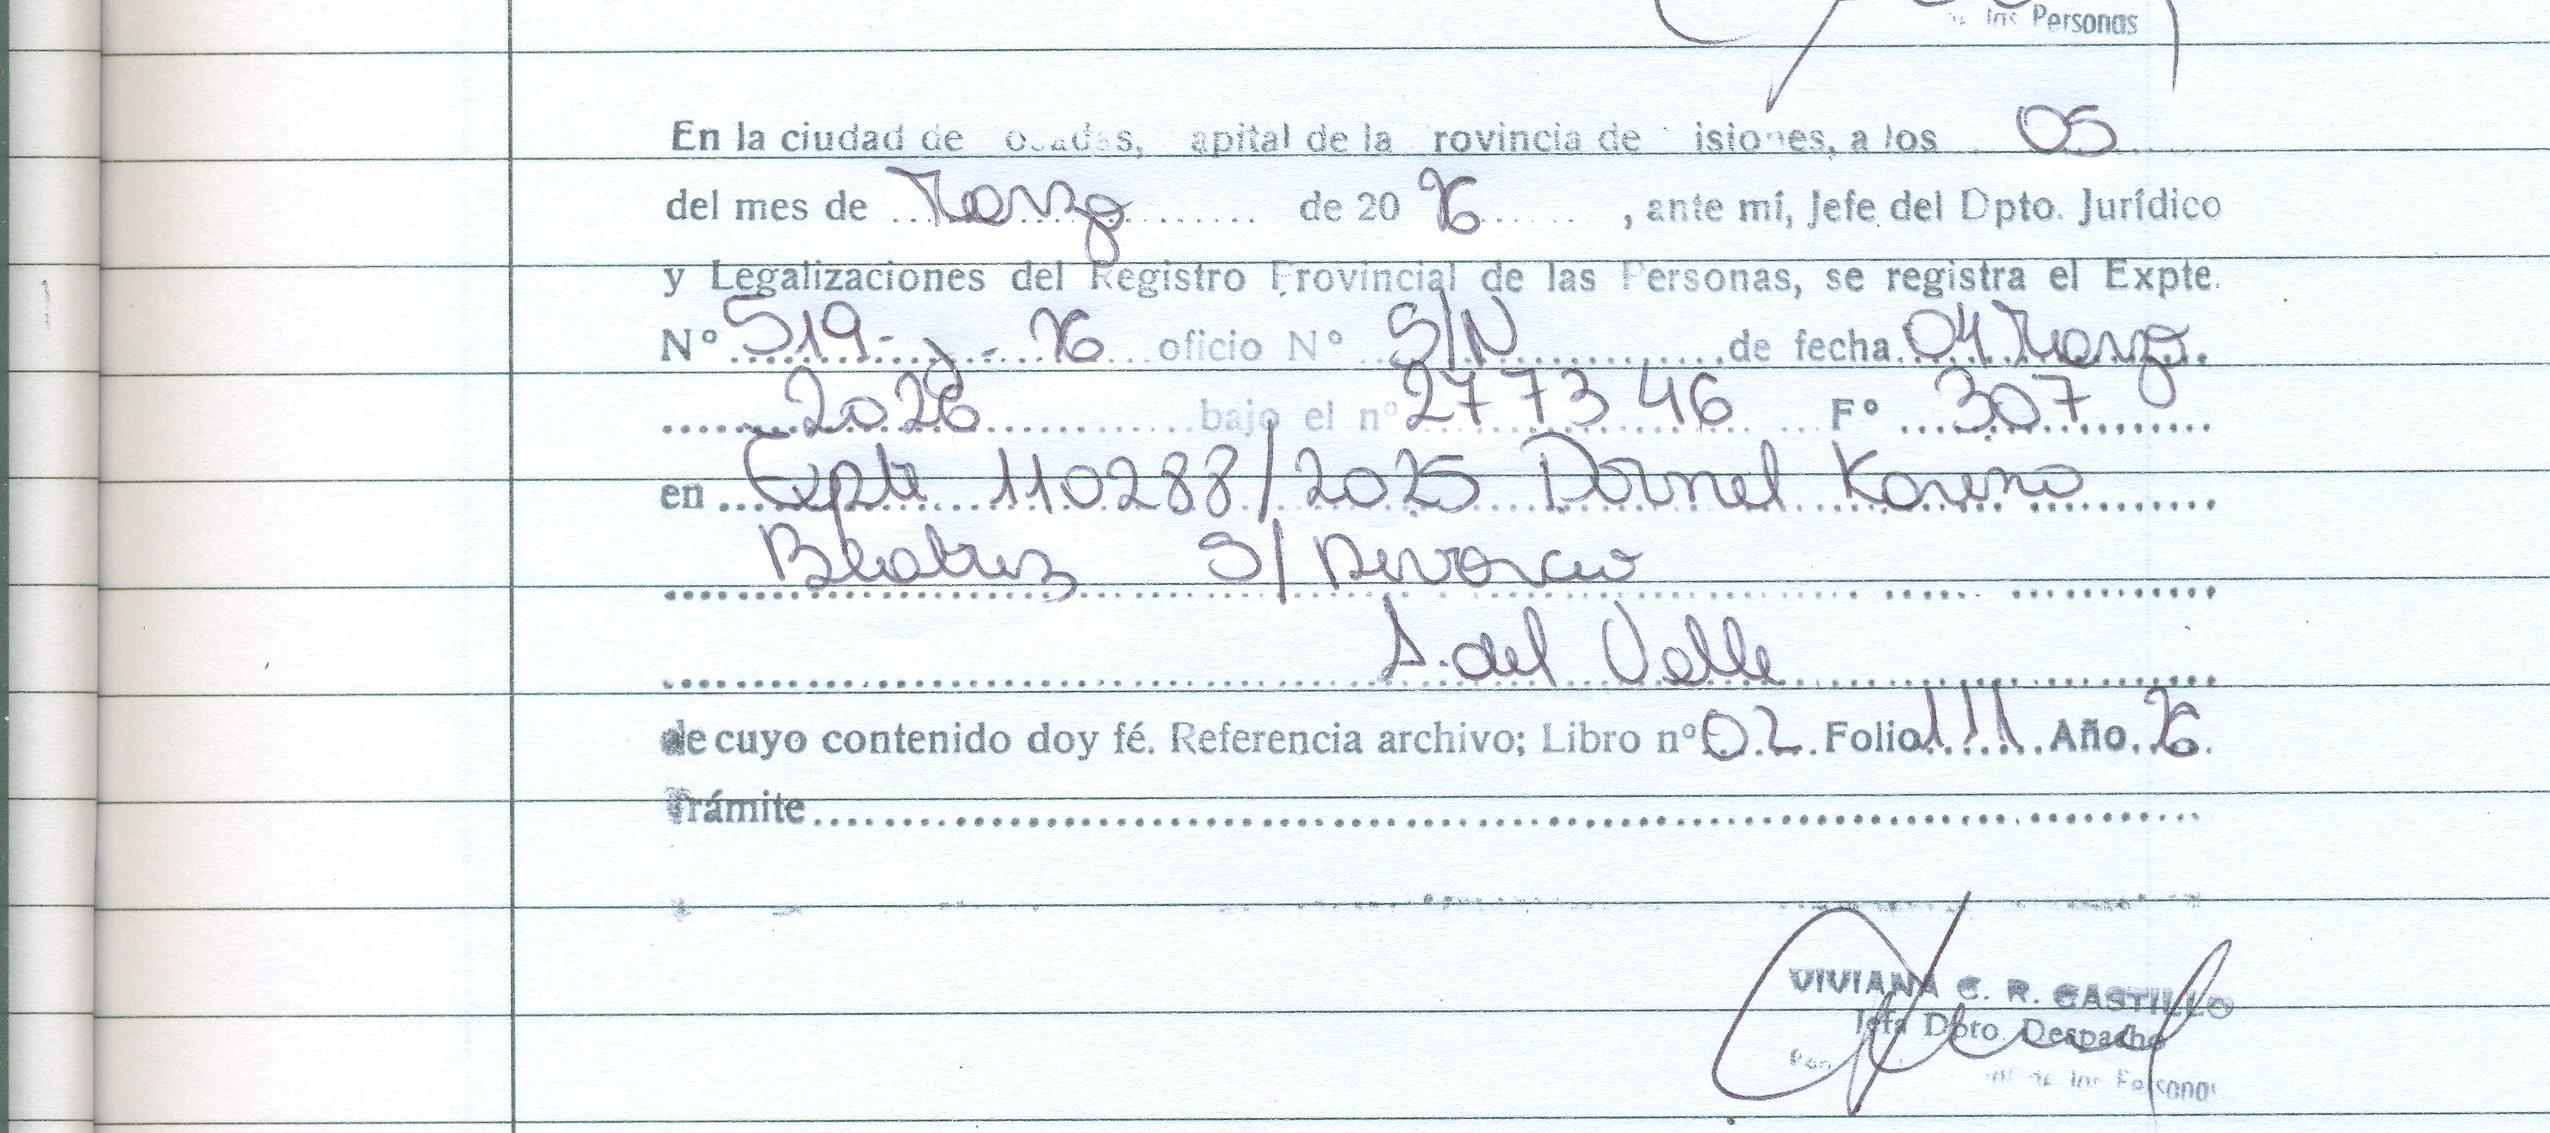 las Personas
En la ciudad de osadas, apital de la rovincia de isiones, a los 05
del mes de Marzo de 20 26, ante mí, Jefe del Dpto. Jurídico
y Legalizaciones del Registro Provincial de las Personas, se registra el Expte.
N° 519- J - 26 oficio N° S/N de fecha 04 Marzo
2026 bajo el n° 277346 F° 307
en Expte 110288/2025 Dornel Karina
Beatriz S/Divorcio
A. del Valle
de cuyo contenido doy fé. Referencia archivo; Libro n° 02 Folio 111 Año 26.
Trámite
VIVIANA C. R. CASTILLO
Jefa Dpto. Despacho
de las Personas